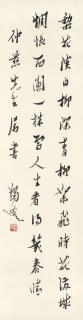 梨花淡白柳深青柳絮飛時花滿城
惆悵東闌一株雪人生看得幾清明
仲燕先生屬書